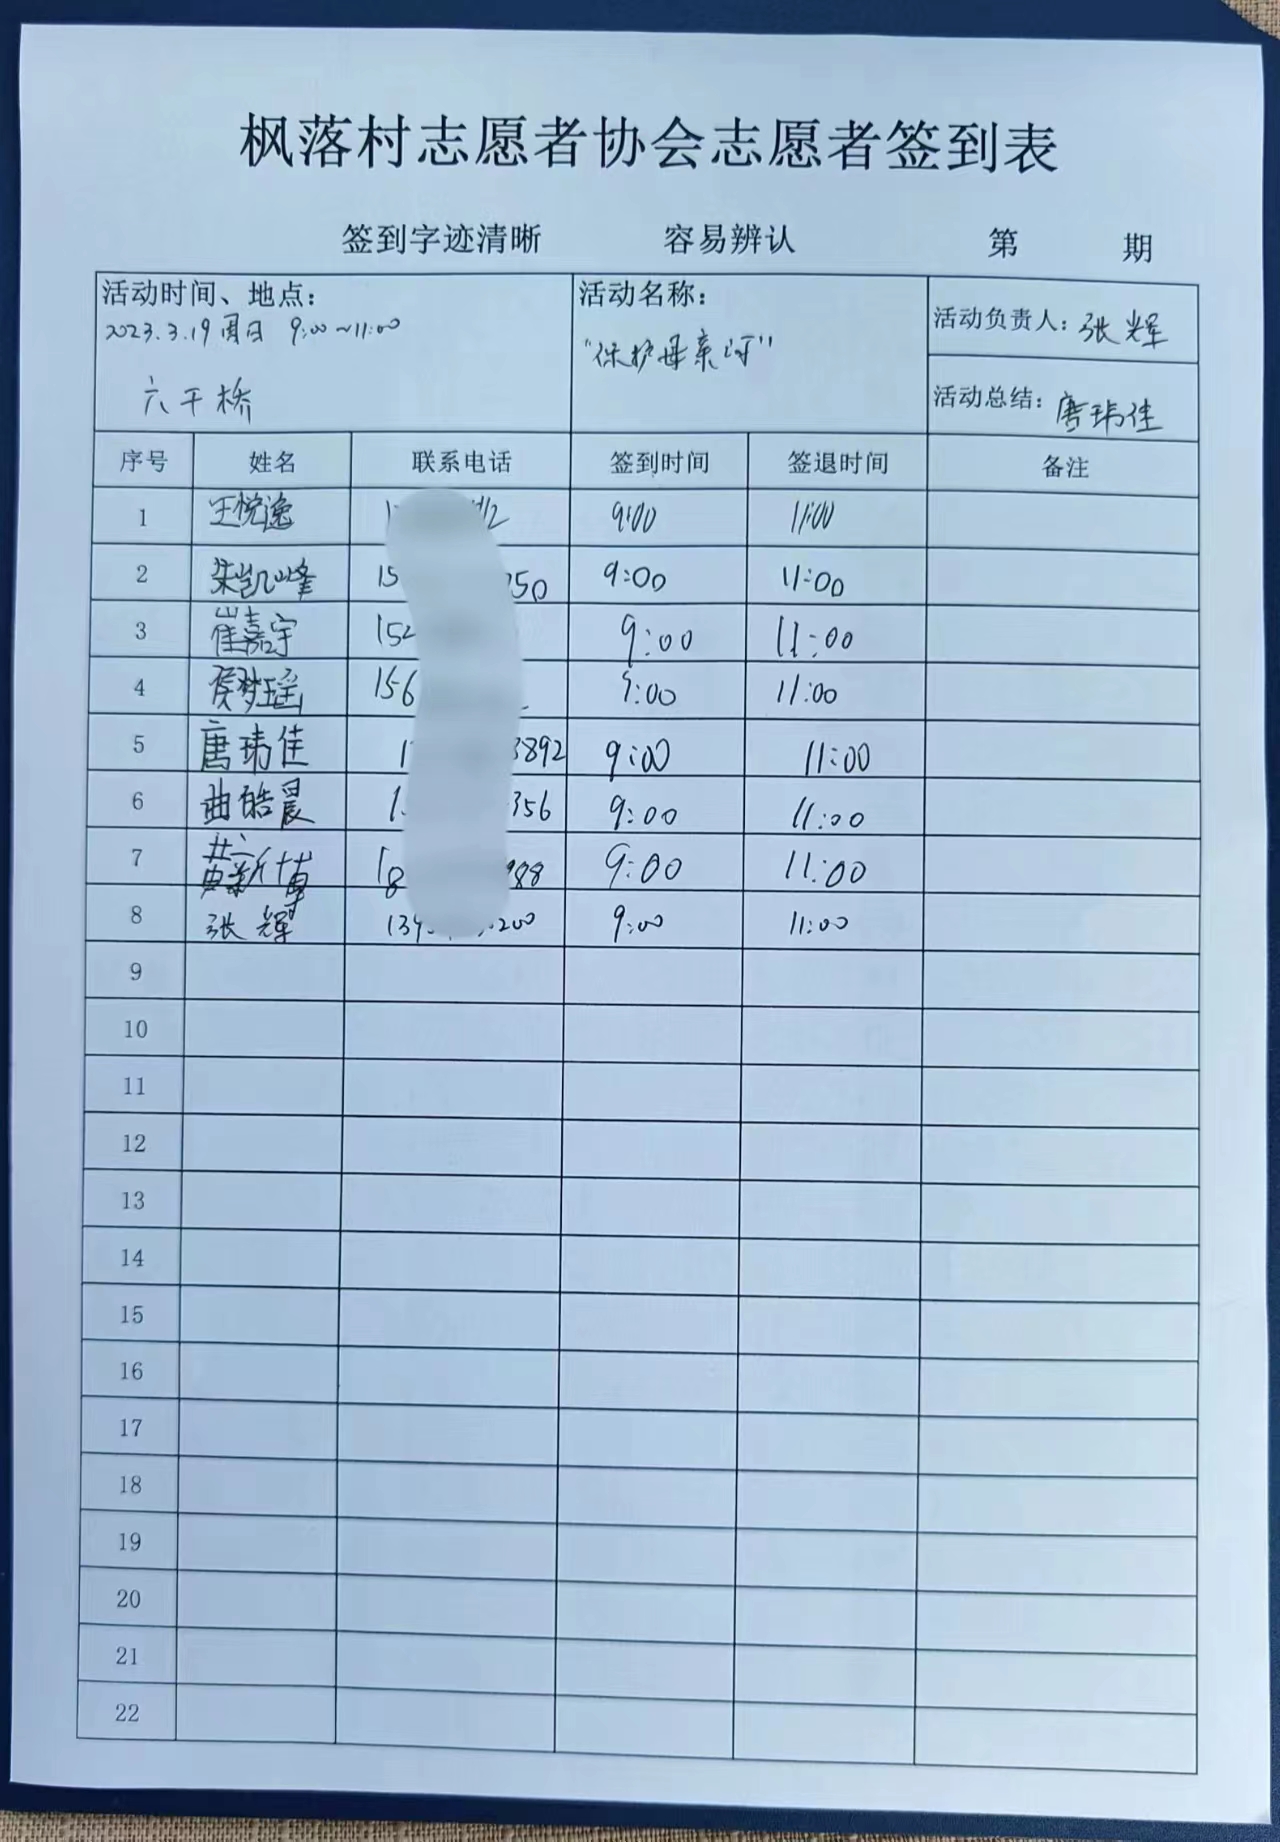 枫落村志愿者协会志愿者签到表
签到字迹清晰 容易辨认 第 期
活动时间、地点： 活动名称： 活动负责人：张辉
2023.3.19周日 9:00~11:00 "保护母亲河"
六干桥 活动总结：唐玮佳
序号 姓名 联系电话 签到时间 签退时间 备注
1 王悦逸 9:00 11:00
2 朱凯峰 15 50 9:00 11:00
3 崔嘉宇 152 9:00 11:00
4 侯梦瑶 156 9:00 11:00
5 唐玮佳 1 3892 9:00 11:00
6 曲皓晨 1 356 9:00 11:00
7 黄新博 18 988 9:00 11:00
8 张辉 139 200 9:00 11:00
9
10
11
12
13
14
15
16
17
18
19
20
21
22